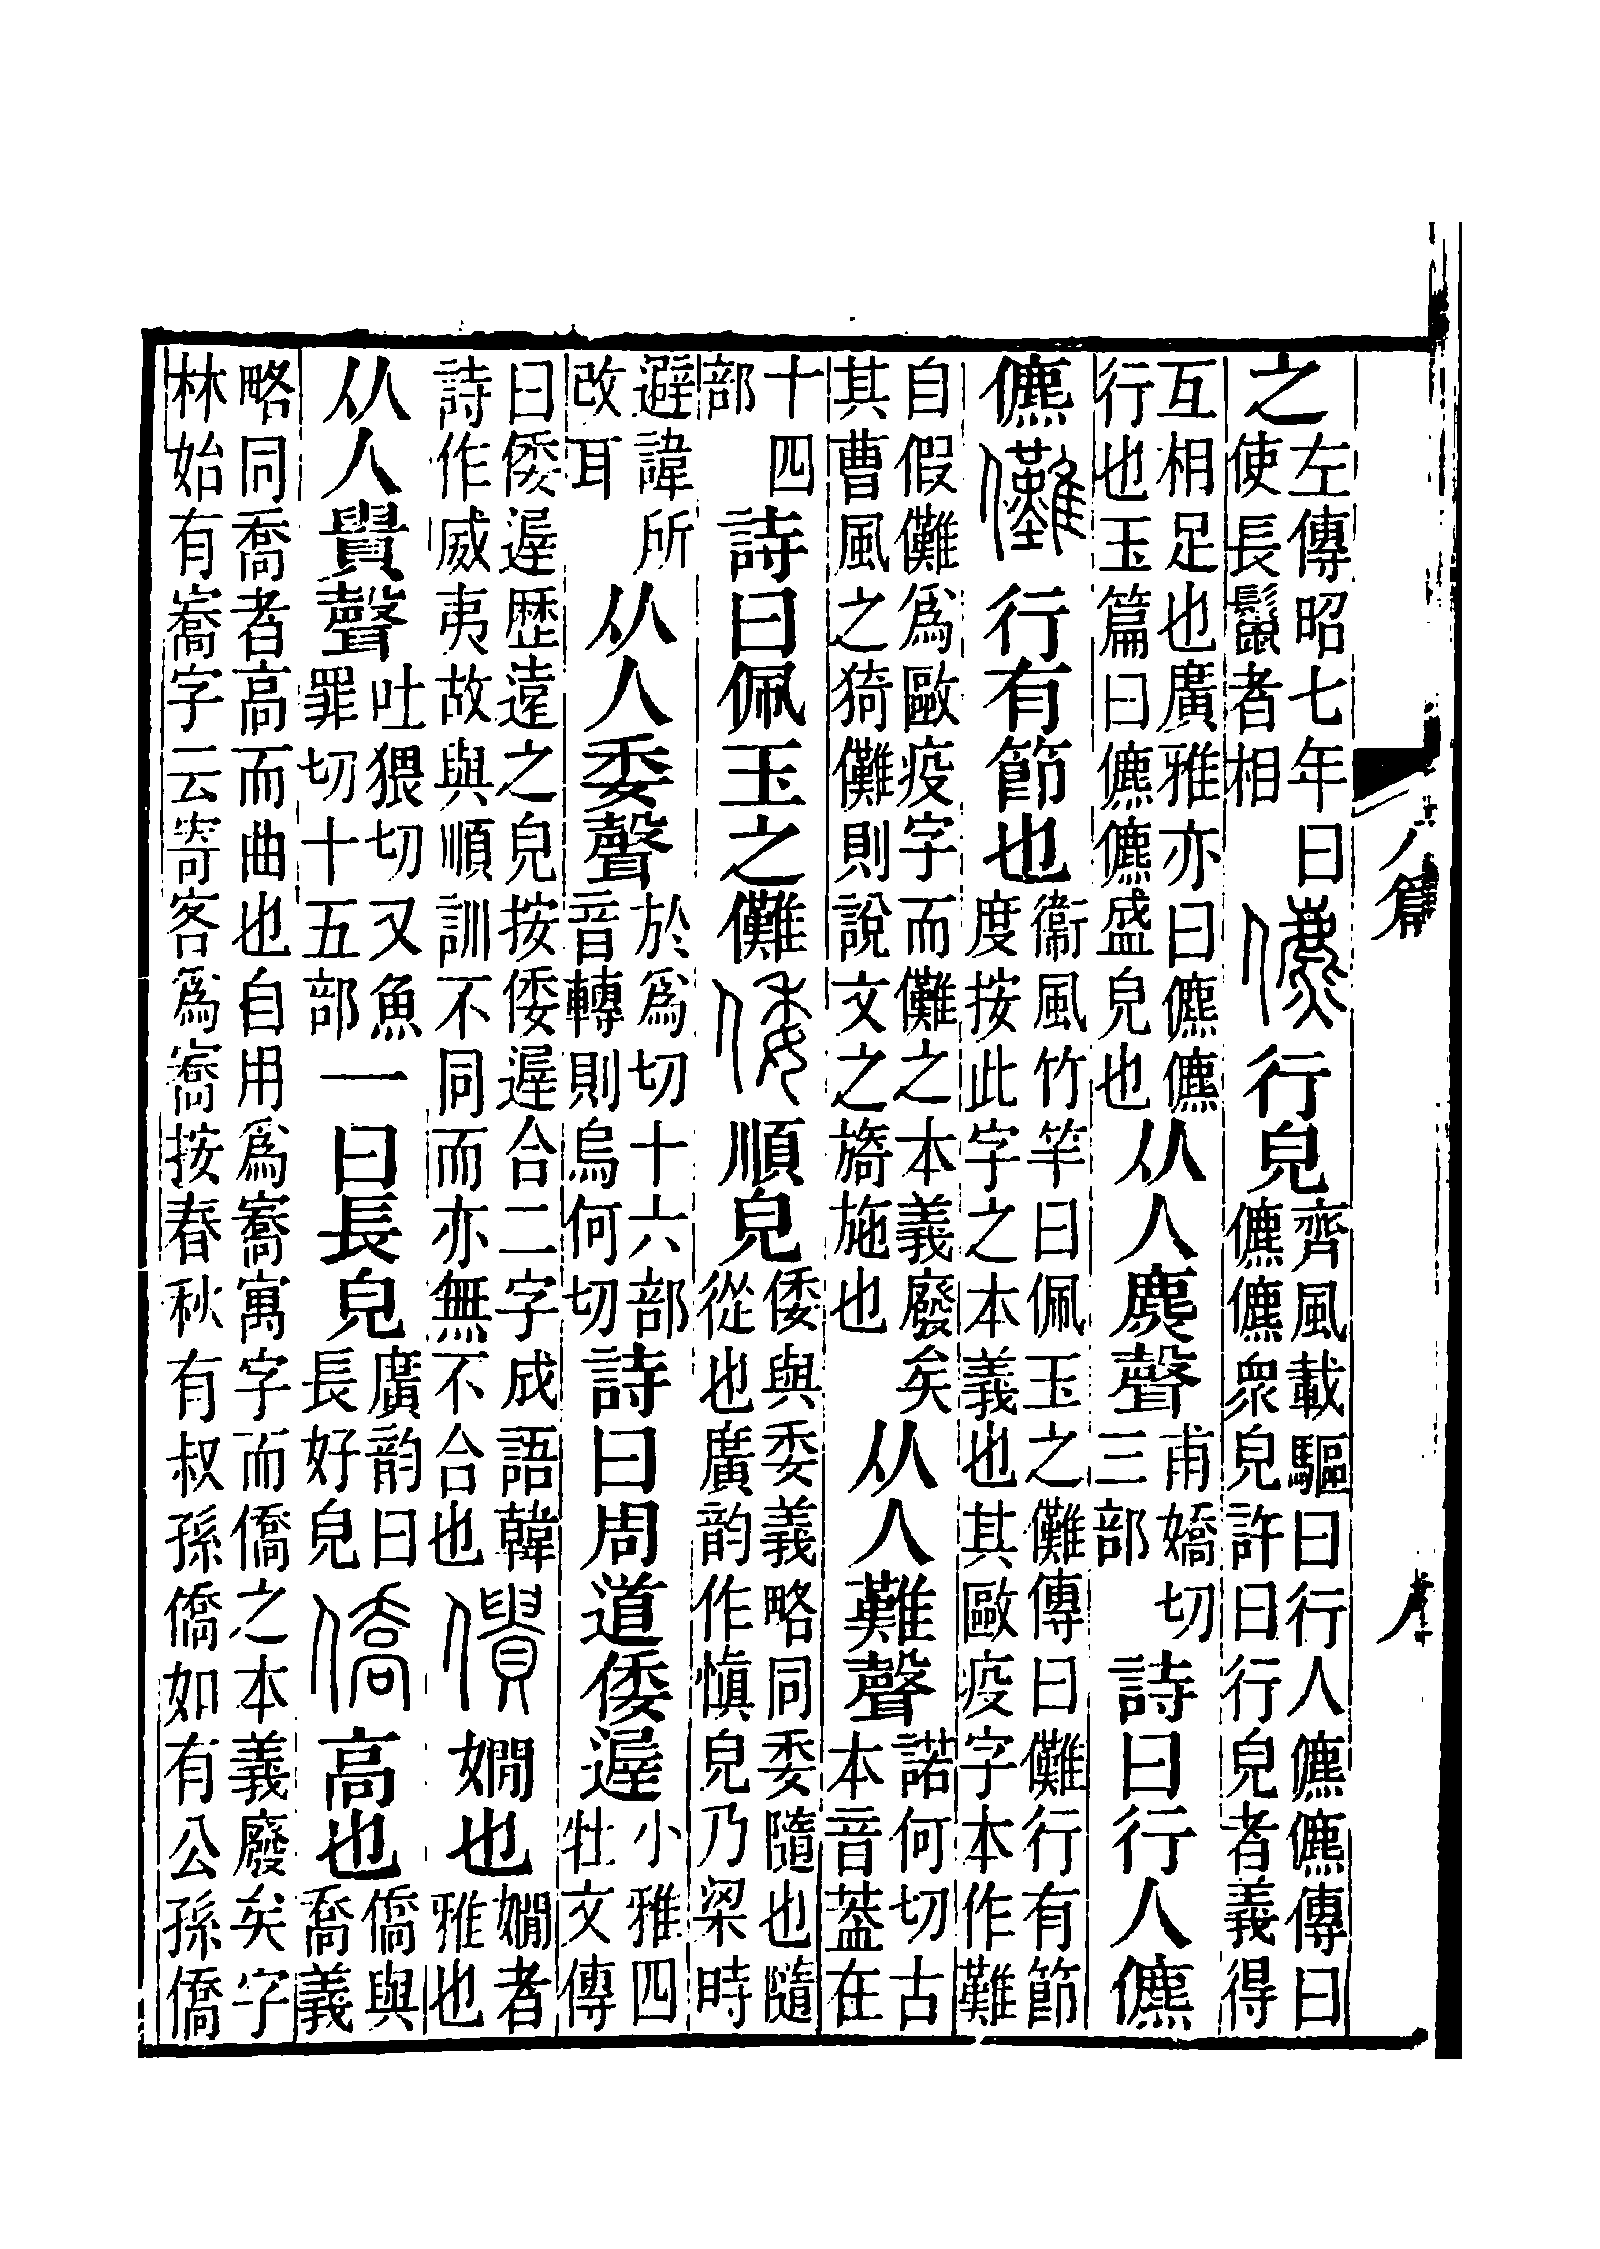 之左傳昭七年曰使長鬛者相儦行皃齊風載驅曰行人儦儦傳曰儦儦衆皃許曰行皃者義得
互相足也廣雅亦曰儦儦行也玉篇曰儦儦盛皃也从人麃聲甫嬌切三部詩曰行人儦
儦儺行有節也衞風竹竿曰佩玉之儺傳曰儺行有節度按此字之本義也其歐疫字本作難
自假儺爲歐疫字而儺之本義廢矣其曹風之猗儺則說文之旖施也从人難聲諾何切古本音葢在
十四部詩曰佩玉之儺倭順皃倭與委義略同委隨也隨從也廣韵作愼皃乃梁時
避諱所改耳从人委聲於爲切十六部音轉則烏何切詩曰周道倭遟小雅四牡文傳
曰倭遟歷遠之皃按倭遟合二字成語韓詩作威夷故與順訓不同而亦無不合也僓嫺也嫺者雅也
从人貴聲吐猥切又魚罪切十五部一曰長皃廣韵曰長好皃僑高也僑與喬義
略同喬者高而曲也自用爲㝯寓字而僑之本義廢矣字林始有㝯字云寄客爲㝯按春秋有叔孫僑如有公孫僑